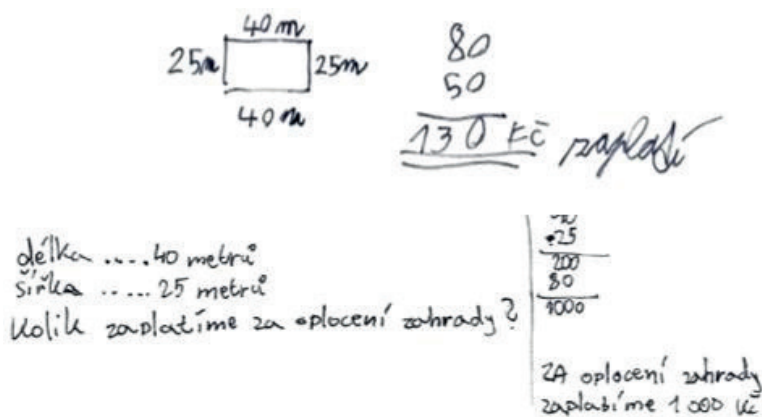 40 m
25m 25m
40 m
80
50
130 Kč zaplatí
délka .... 40 metrů
šířka ..... 25 metrů
Kolik zaplatíme za oplocení zahrady?
·25
200
80
1000
ZA oplocení zahrady
zaplatíme 1 000 Kč